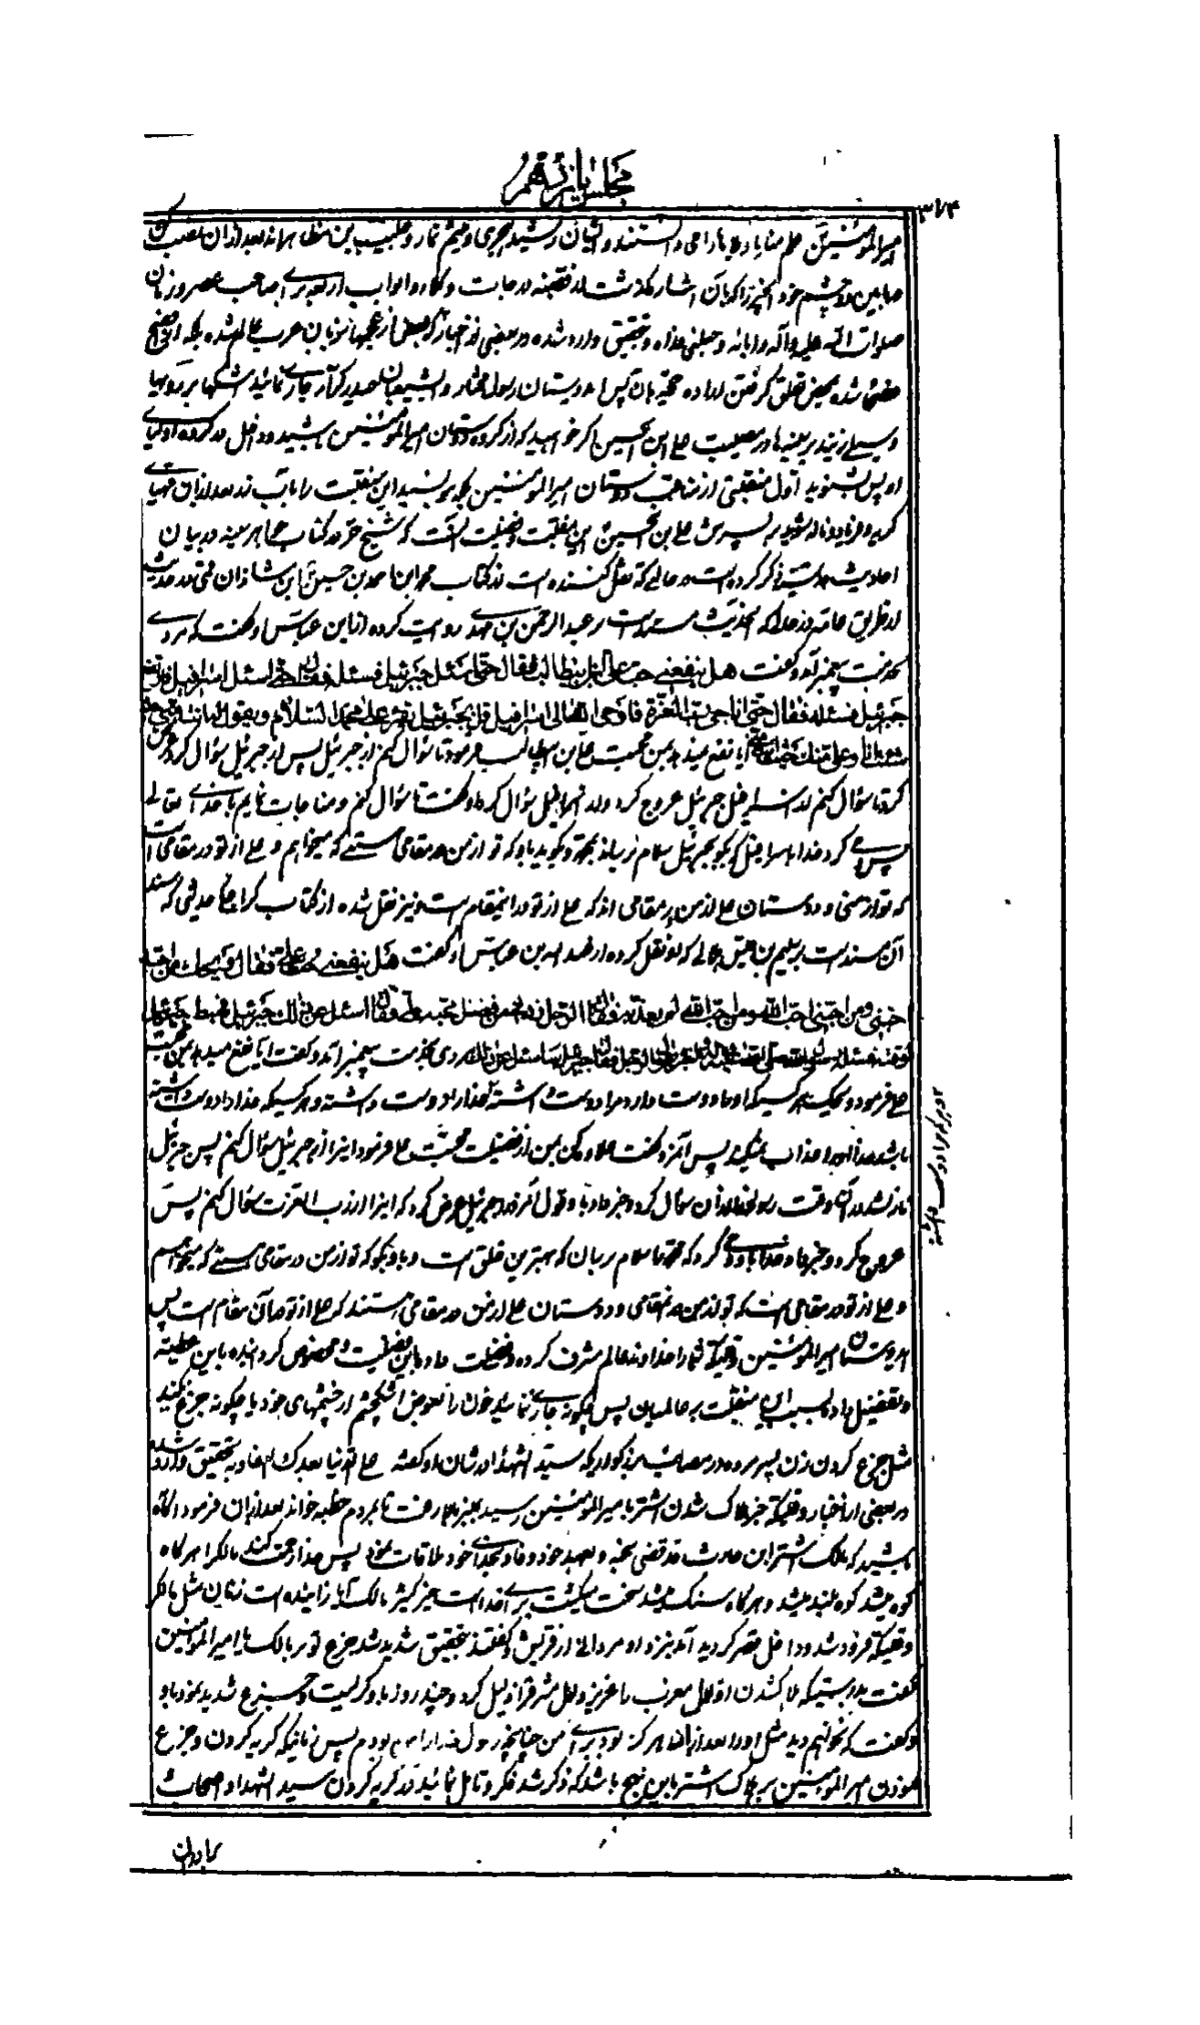 مجلس یازدهم
۳۷۴
امیرالمؤمنین علم منایا و بلایا را می دانستند و ایشان رشید هجری و میثم تمار و حبیب بن مظاهر اند بعد از آن نصب کن
مابین دو چشم خود آنچیز را که بآن اشاره گذشت از قضیه در جابت و کار و ابواب از برای صاحب عصر و زمان
صلوات الله علیه و آله و ابائه و جعلنی فداه و تحقیق وارد شده در بعضی از اخبار که بعضی از عجمها بزبان عرب عالم شده بلکه افصح
فصحا شده بمحض تعلق گرفتن اراده پس ای دوستان رسول مختار و ای شیعیان حیدر کرار جاری نمائید اشکها بر رویها
و سیلی زنید بر سینه ها در مصیبت علی ابن الحسین اگر خواهید که از گروه دوستان امیرالمؤمنین باشید و داخل در گروه اولیای
او پس بشنوید اول منقبتی از مناقب دوستان امیرالمؤمنین که بنویسید این منقبت را باب زر بعد از آن مهیای
گریه و فریاد و ناله شوید بر پسرش علی بن الحسین این منقبت و فضیلت آنست که شیخ حر در کتاب جواهر سنیه در بیان
احادیث قدسیه ذکر کرده است در حالی که نقل کننده است از کتاب محمد ابن احمد بن حسین بن شاذان قمی صد حدیث
از طریق عامه در حالی که حدیث مسند است بر عبد الرحمن بن روایت کرده از ابن عباس او گفت که مردی
بخدمت پیغمبر آمد و گفت هل ینفعنی حب علی بن ابیطالب فقال حتی اسئل جبرئیل فسئله فقال حتی اسئل اسرافیل فارتفع
جبرئیل فسئله فقال حتی اناجی رب العزة فاوحی الله تعالی الی اسرافیل قل لجبرئیل یقرء علی محمد السلام و یقول له انت منی حیث
شئت انا و علی منک حیث انت منی آیا نفع میدهد بمن محبت علی بن ابیطالب فرمود تا سؤال کنم از جبرئیل پس از جبرئیل سؤال کرد عرض
کرد تا سؤال کنم از اسرافیل جبرئیل عروج کرد و از اسرافیل سؤال کرد او گفت تا سؤال کنم و مناجات نمایم با خدای تعالی
پس وحی کرد خدا باسرافیل که بگو بجبرئیل سلام برساند بمحمد و بگوید باو که تو از من در مقامی هستی که میخواهم و علی از تو در مقامی است
که تو از منی و دوستان علی از من در مقامی اند که علی از تو در آنمقام است و نیز نقل شده از کتاب کراجکی حدیثی که سند
آن مسند است بر سلیم بن در حالی که او نقل کرده از عبد الله بن عباس او گفت هل ینفعنی حب علی فقال ویحک من احبه
احبنی و من احبنی احب الله و من احب الله لم یعذبه فقال الرجل زدنی من فضل محبة علی فقال اسئل عن ذلک جبرئیل فهبط جبرئیل
لوقته فسئله رسول الله مردی بخدمت پیغمبر آمد و گفت آیا نفع میدهد بمن محبت
علی فرمود ویحک هر کسیکه او را دوست دارد مرا دوست داشته خدا را دوست داشته و هر کسیکه خدا را دوست داشته
باشد خدا او را عذاب نمیکند پس آنمرد گفت علاوه کن بمن از فضیلت محبت علی فرمود اینرا از جبرئیل سؤال کنم پس جبرئیل
نازل شد در آنوقت رسولخدا از آن سؤال کرد و خبر داد باو قول آنمرد را جبرئیل عرض کرد که اینرا از رب العزت سؤال کنم پس
عروج کرد و خبر داد خدا باو وحی کرد که بمحمد ما سلام برسان که بهترین خلق است و باو بگو که تو از من در مقامی هستی که میخواهم
و علی از تو در مقامی است که تو از من در آنمقامی و دوستان علی از من در مقامی هستند که علی از تو در آن مقام است پس
ای دوستان امیرالمؤمنین وقتیکه شما را خداوند عالم مشرف کرده و فضیلت داده باین فضیلت و مخصوص کردانیده باین عطیه
و تفضیل داده بسبب این منقبت بر عالمیان پس چگونه جاری نمائید خون را بعوض اشک چشم از چشمهای خود یا چگونه جزع نکنید
مثل جزع کردن زن پسر مرده در مصائب بزرگواریکه سید الشهداء در شان او گفته علی الدنیا بعدک العفا و بتحقیق وارد شده
در بعضی از اخبار وقتیکه خبر هلاک شدن اشتر بامیرالمؤمنین رسید بمنبر بالا رفت تا بمردم خطبه خواند بعد از آن فرمود آگاه
باشید که مالک اشتر ابن حارث قد قضی نحبه و بعهد خود وفا و بخدای خود ملاقات نمود پس خدا رحمت کند مالک را هر گاه
کوه میشد کوه بلند میشد و هر گاه سنگ میشد سخت میگشت برای خداست خیر کثیر مالک آیا زاینده است زنان مثل مالک
وقتیکه فرود شد و داخل قصر گردید آمد بنزد او مردانی از قریش گفتند بتحقیق شدید شد جزع تو بر مالک یا امیرالمؤمنین
گفت بدرستیکه هلاک شدن او اهل مغرب را عزیز و اهل مشرق را ذلیل کرد و چند روز باو گریست و جزع شدید نمود باو
و گفت که نخواهم دید مثل او را بعد از آن هرگز بود برای من چنانچه رسول خدا را من بودم پس زمانیکه گریه کردن و جزع
نمودن امیرالمؤمنین بر هلاک اشتر باین نهج باشد که ذکر شد فکر و تامل نمائید در گریه کردن سید الشهداء و اصحابش
و هر که مرا دوست داشته
بر اولاد